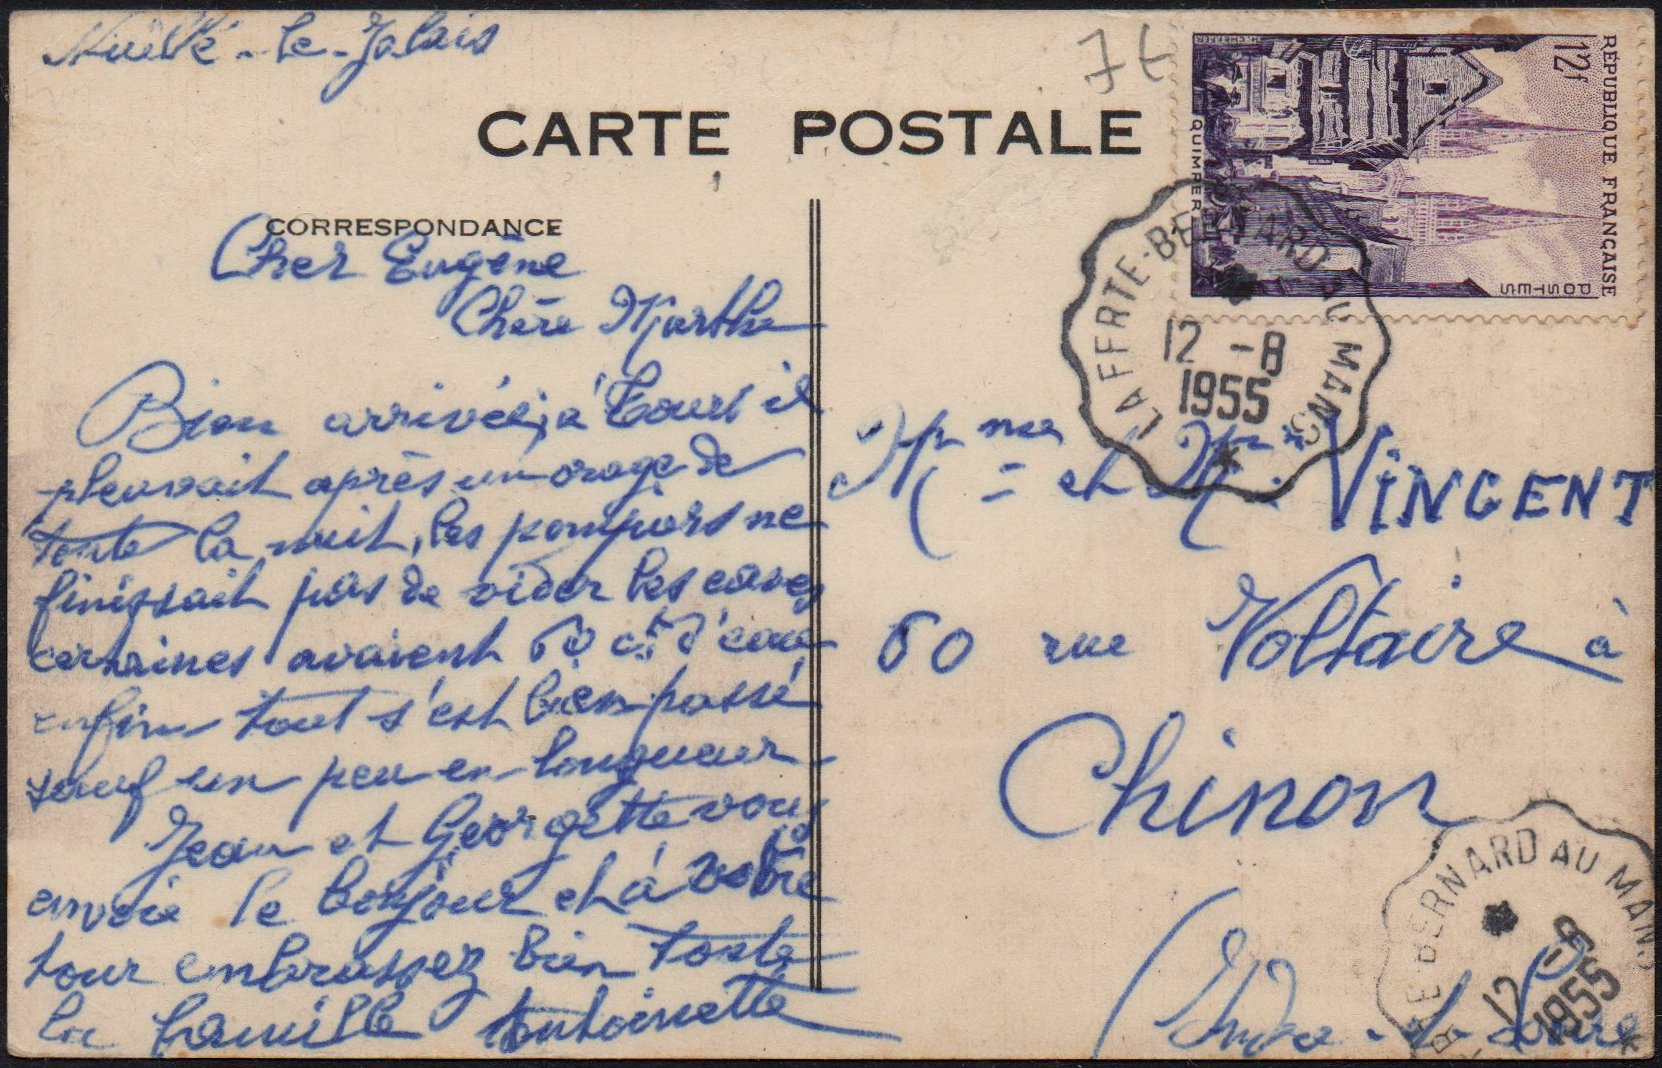 Nuillé-le-Jalais
7 €
CARTE POSTALE
RÉPUBLIQUE FRANÇAISE
12f
POSTES
QUIMPER
LA FERTE-BERNARD AU MANS
12 -8
1955
CORRESPONDANCE
Cher Eugène
Chère Marthe
Bien arrivée, à Tours il
pleuvait après un orage de
toute la nuit, les pompiers ne
finissait pas de vider les caves
certaines avaient 60 ct. d'eau
enfin tout s'est bien passé
sauf un peu en longueur
Jean et Georgette vous
envoie le bonjour et à votre
tour embrassez bien toute
la famille Antoinette
Mme et Mr VINCENT
60 rue Voltaire à
Chinon
(Indre-et-Loire
BERNARD AU MANS
12 -8
1955